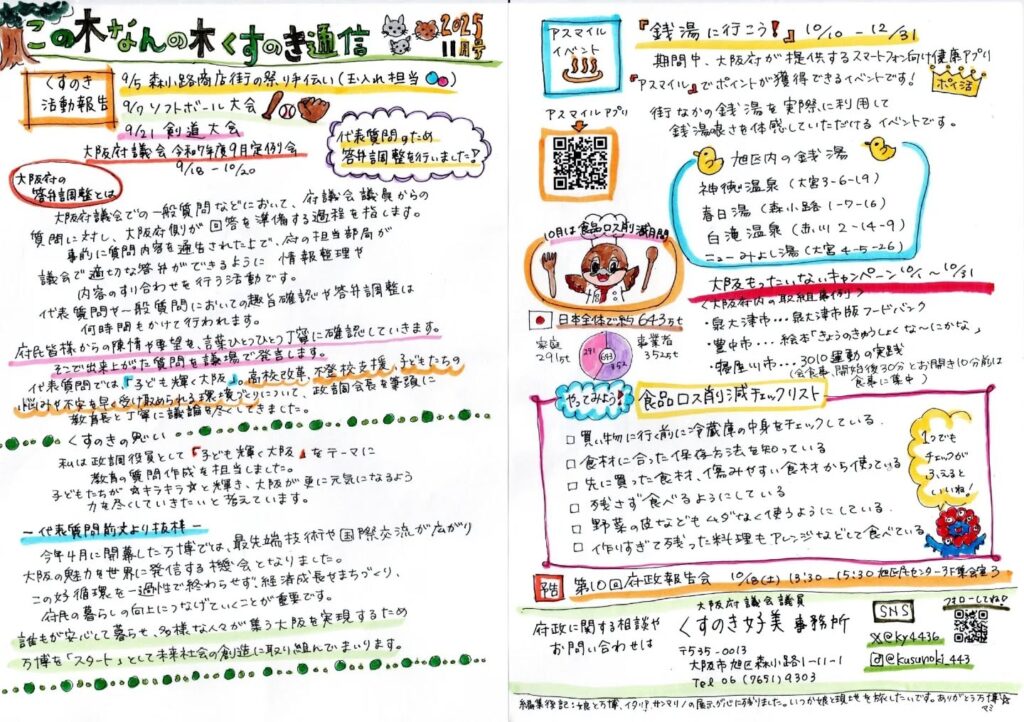 この木なんの木くすのき通信
2025
11月号
くすのき
活動報告
9/5 森小路商店街の祭り手伝い(玉入れ担当)
9/7 ソフトボール大会
9/21 創道大会
大阪府議会 令和7年度9月定例会
9/18 - 10/20
代表質問のため
答弁調整を行いました!
大阪府の
答弁調整とは
大阪府議会での一般質問などにおいて、府議会議員からの
質問に対し、大阪府側が回答を準備する過程を指します。
事前に質問内容を通告された上で、府の担当部局が
議会で適切な答弁ができるように 情報整理や
内容のすり合わせを行う活動です。
代表質問や一般質問においての趣旨確認や答弁調整は
何時間もかけて行われます。
府民皆様からの陳情や要望を、言葉ひとつひとつ丁寧に確認していきます。
そこで出来上がた質問を議場で発言します。
代表質問では、「子ども輝く大阪」。高校改革、不登校支援、子どもたちの
悩みや不安を早く受け取められる環境づくりについて、政調会長を筆頭に
教育長と丁寧に議論を尽くしてきました。
くすのきの思い
私は政調役員として『子ども輝く大阪』をテーマに
教育の質問作成を担当しました。
子どもたちが☆キラキラ☆と輝き、大阪が更に元気になるよう
力を尽くしていきたいと考えています。
ー代表質問前文より抜粋ー
今年4月に開幕した万博では、最先端技術や国際交流が広がり
大阪の魅力を世界に発信する機会となりました。
この好循環を一過性で終わらせず、経済成長やまちづくり、
府民の暮らしの向上につなげていくことが重要です。
誰もが安心して暮らせ、多様な人々が集う大阪を実現するため
万博を「スタート」として未来社会の創造に取り組んでまいります。
アスマイル
イベント
『銭湯に行こう!』 10/10 - 12/31
期間中、大阪府が提供するスマートフォン向け健康アプリ
『アスマイル』でポイントが獲得できるイベントです!
ポイ活
アスマイルアプリ
街なかの銭湯を実際に利用して
銭湯の良さを体感していただけるイベントです。
旭区内の銭湯
神徳温泉 (大宮3-6-19)
春日湯 (森小路1-7-16)
白滝温泉 (赤川2-14-9)
ニューみよし湯 (大宮4-5-26)
10月は食品ロス削減月間
大阪もったいないキャンペーン 10/1~10/31
<大阪府内の取組事例>
・泉大津市・・・泉大津市版フードバンク
・豊中市・・・絵本「きょうのきゅうしょくな~にかな」
・寝屋川市・・・3010運動の実践
(会食事、開始後30分とお開き10分前は
食事に集中)
日本全体で約643万t
家庭
291万t
事業者
352万t
291
643
352
やってみよう!
食品ロス削減チェックリスト
□ 買い物に行く前に冷蔵庫の中身をチェックしている
□ 食材に合った保存方法を知っている
□ 先に買った食材、傷みやすい食材から使っている
□ 残さず食べるようにしている
□ 野菜の皮などもムダなく使うようにしている
□ 作りすぎて残った料理もアレンジなどして食べている
1つでも
チェックが
ふえると
いいね!
予告
第10回府政報告会 10/18(土) 13:30-15:30 旭区民センター3F集会室3
府政に関する相談や
お問い合わせは
大阪府議会議員
くすのき好美 事務所
〒535-0013
大阪市旭区森小路1-11-1
Tel 06(7651)9303
SNS
フォローしてね♡
X@ky4436
@kusunoki_443
編集後記:娘と万博、イタリア、サンマリノの展示が心に残りました。いつか娘と現地を旅したいです。ありがとう万博☆